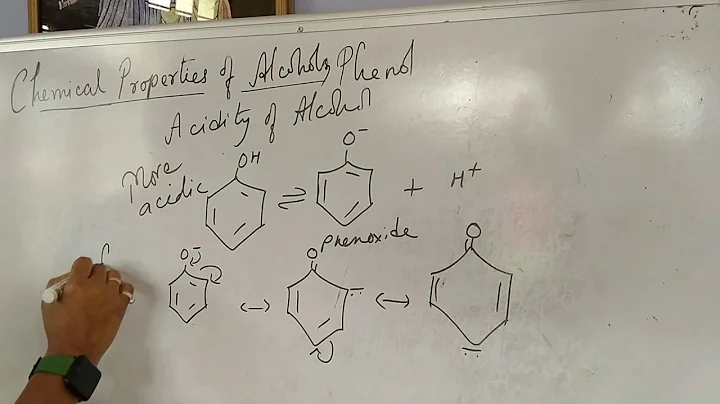 Chemical Properties of Alcohols, Phenol
Acidity of Alcohol
More
acidic
OH
⇌
O⁻
+ H⁺
Phenoxide
O⁻ ↔ O ↔ O